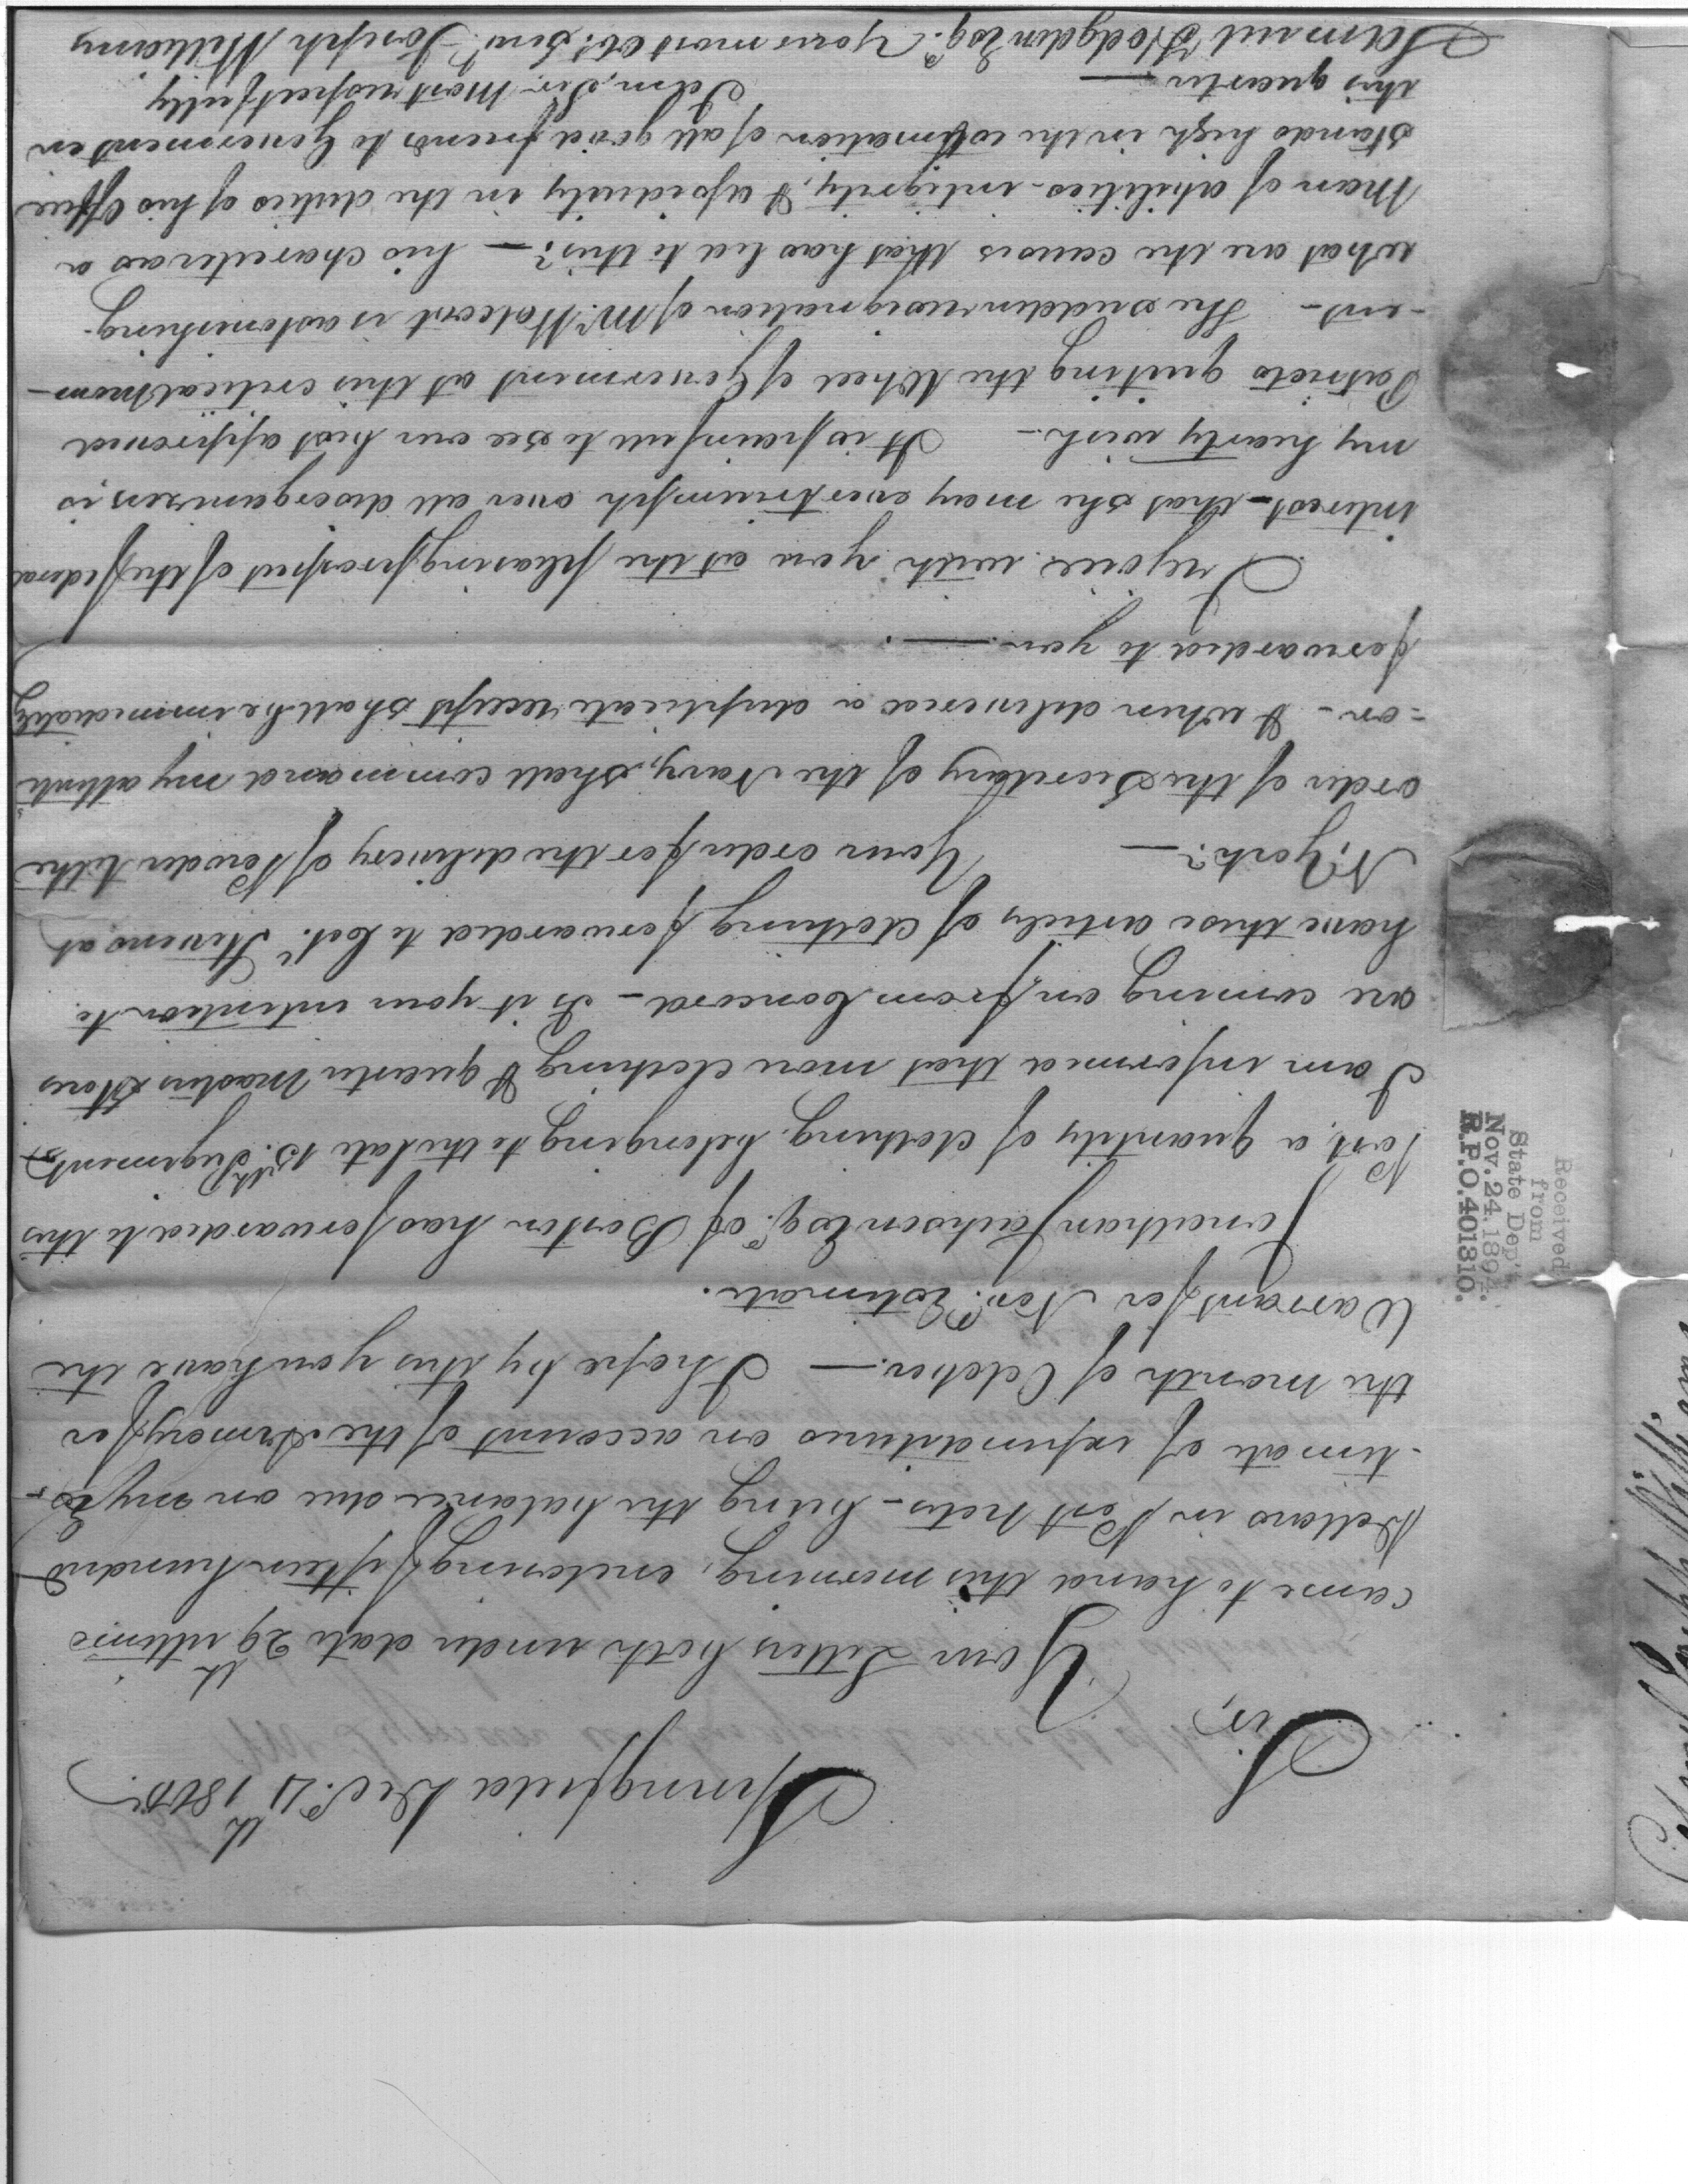 Springfield Decr. 4th 1800.
Sir,
Your Letters both under date 29th ultimo
came to hand this morning, enclosing fifteen hundred
Dollars in Post notes - being the balance due on my es-
-timate of expenditures on account of the Armory for
the month of October. — I hope by this you have the
Warrant for Novr. Estimate.
Jonathan Jackson Esqr. of Boston has forwarded to this
Post, a quantity of clothing, belonging to the late 15th. Regiment -
I am informed that more clothing & quarter Masters Stores
are coming on from Concord - Is it your intention to
have those articles of clothing forwarded to Colo. Stevens, at
N. York? — Your order for the delivery of Powder to the
order of the Secretary of the Navy, shall command my attenti
-on - & when delivered a duplicate receipt shall be immediately
forwarded to you —.
I rejoice with you at the pleasing prospect of the federal
interest - that she may ever triumph over all disorganizers, is
my hearty wish - It is painfull to see our best approved
Patriots quiting the Wheel of Goverment at this critical Mom-
-ent - The sudden resignation of Mr. Wolcott is astonishing -
what are the causes that has led to this? — his charecter as a
Man of abilities - intigrity, & assiduity in the duties of his Office
stands high in the estimation of all good friends to Goverment in
this quarter — I am, Sir, Most respectfully
Samuel Hodgdon Esqr. Your most Obt. Servt. Joseph Williams
Received
from
State Dep't.
Nov. 24. 1894.
R.P.O. 401310.
Joseph Williams